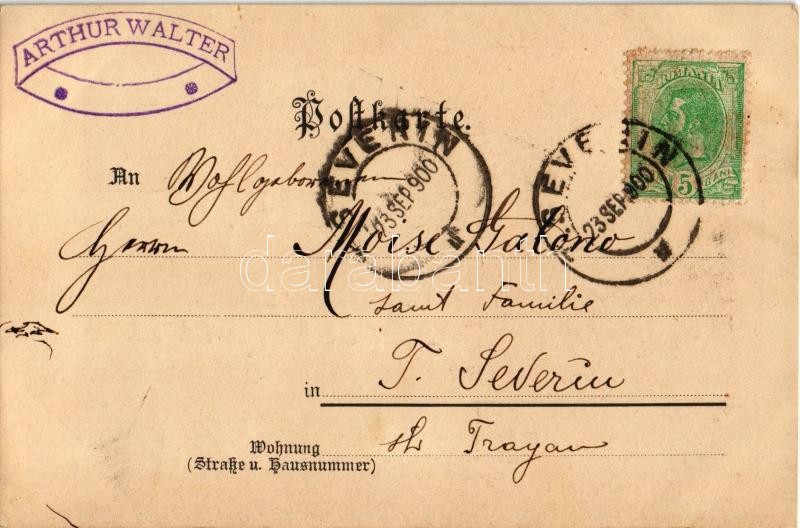 ARTHUR WALTER
ROMANIA
5 BANI
Postkarte.
SEVERIN
23 SEP 900
SEVERIN
23 SEP 900
An Wohlgeboren
Herrn Moise Galono
samt Familie
in T. Severin
Wohnung
(Straße u. Hausnummer)
str Trayan
darabanth